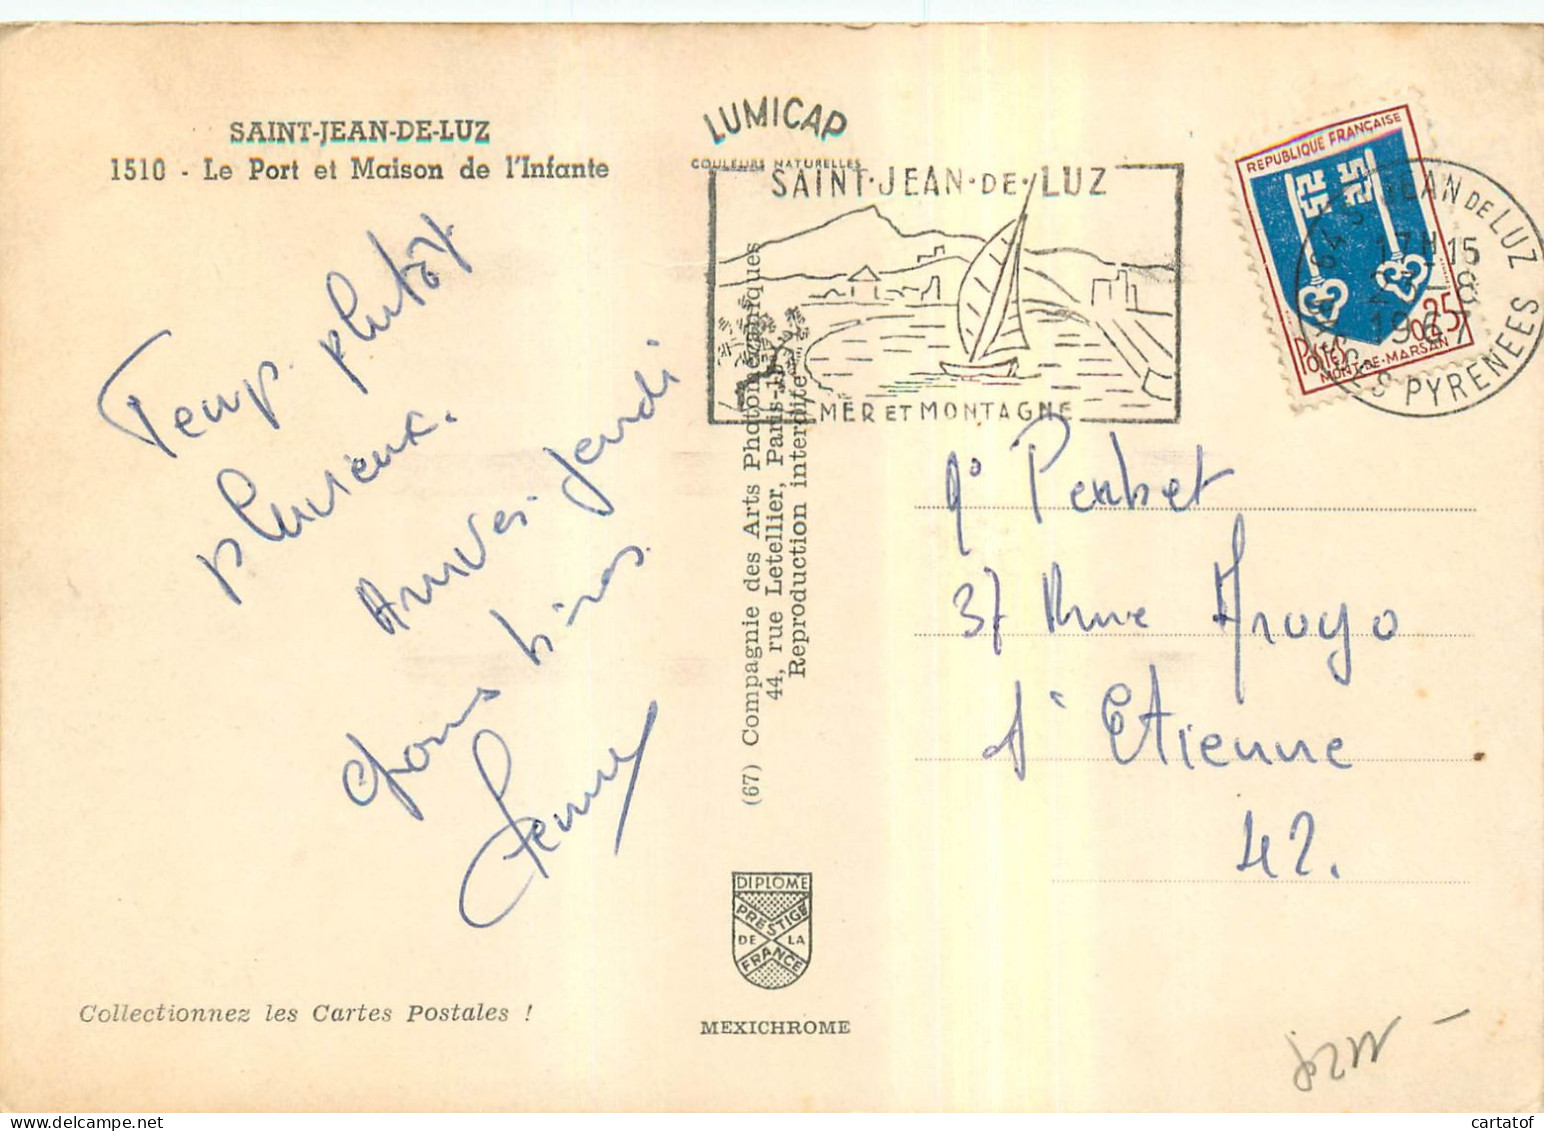 SAINT-JEAN-DE-LUZ
1510 - Le Port et Maison de l'Infante
LUMICAP
COULEURS NATURELLES
SAINT-JEAN-DE-LUZ
MER ET MONTAGNE
REPUBLIQUE FRANÇAISE
Postes 0,25
MONT-DE-MARSAN
S JEAN DE LUZ
17H15
23-8
1967
PYRENEES
Temp plutôt
pluvieux.
Arrivés jeudi
Gros bises
(67) Compagnie des Arts Photomécaniques
44, rue Letellier, Paris-15
Reproduction interdite
37 Rue Arago
St Etienne
42.
DIPLOME
PRESTIGE
DE LA
FRANCE
MEXICHROME
Collectionnez les Cartes Postales !
cartatof